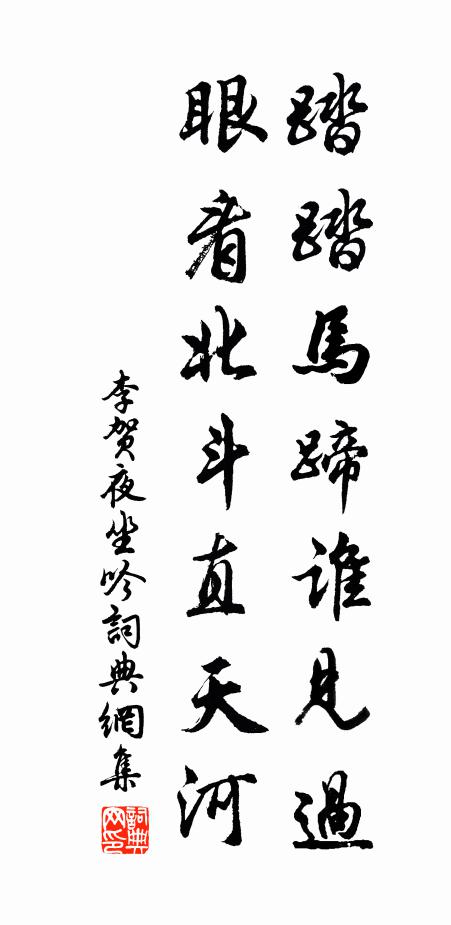 踏踏馬蹄誰見過
眼看北斗直天河
李贺夜坐吟詞典網集
詞典网印